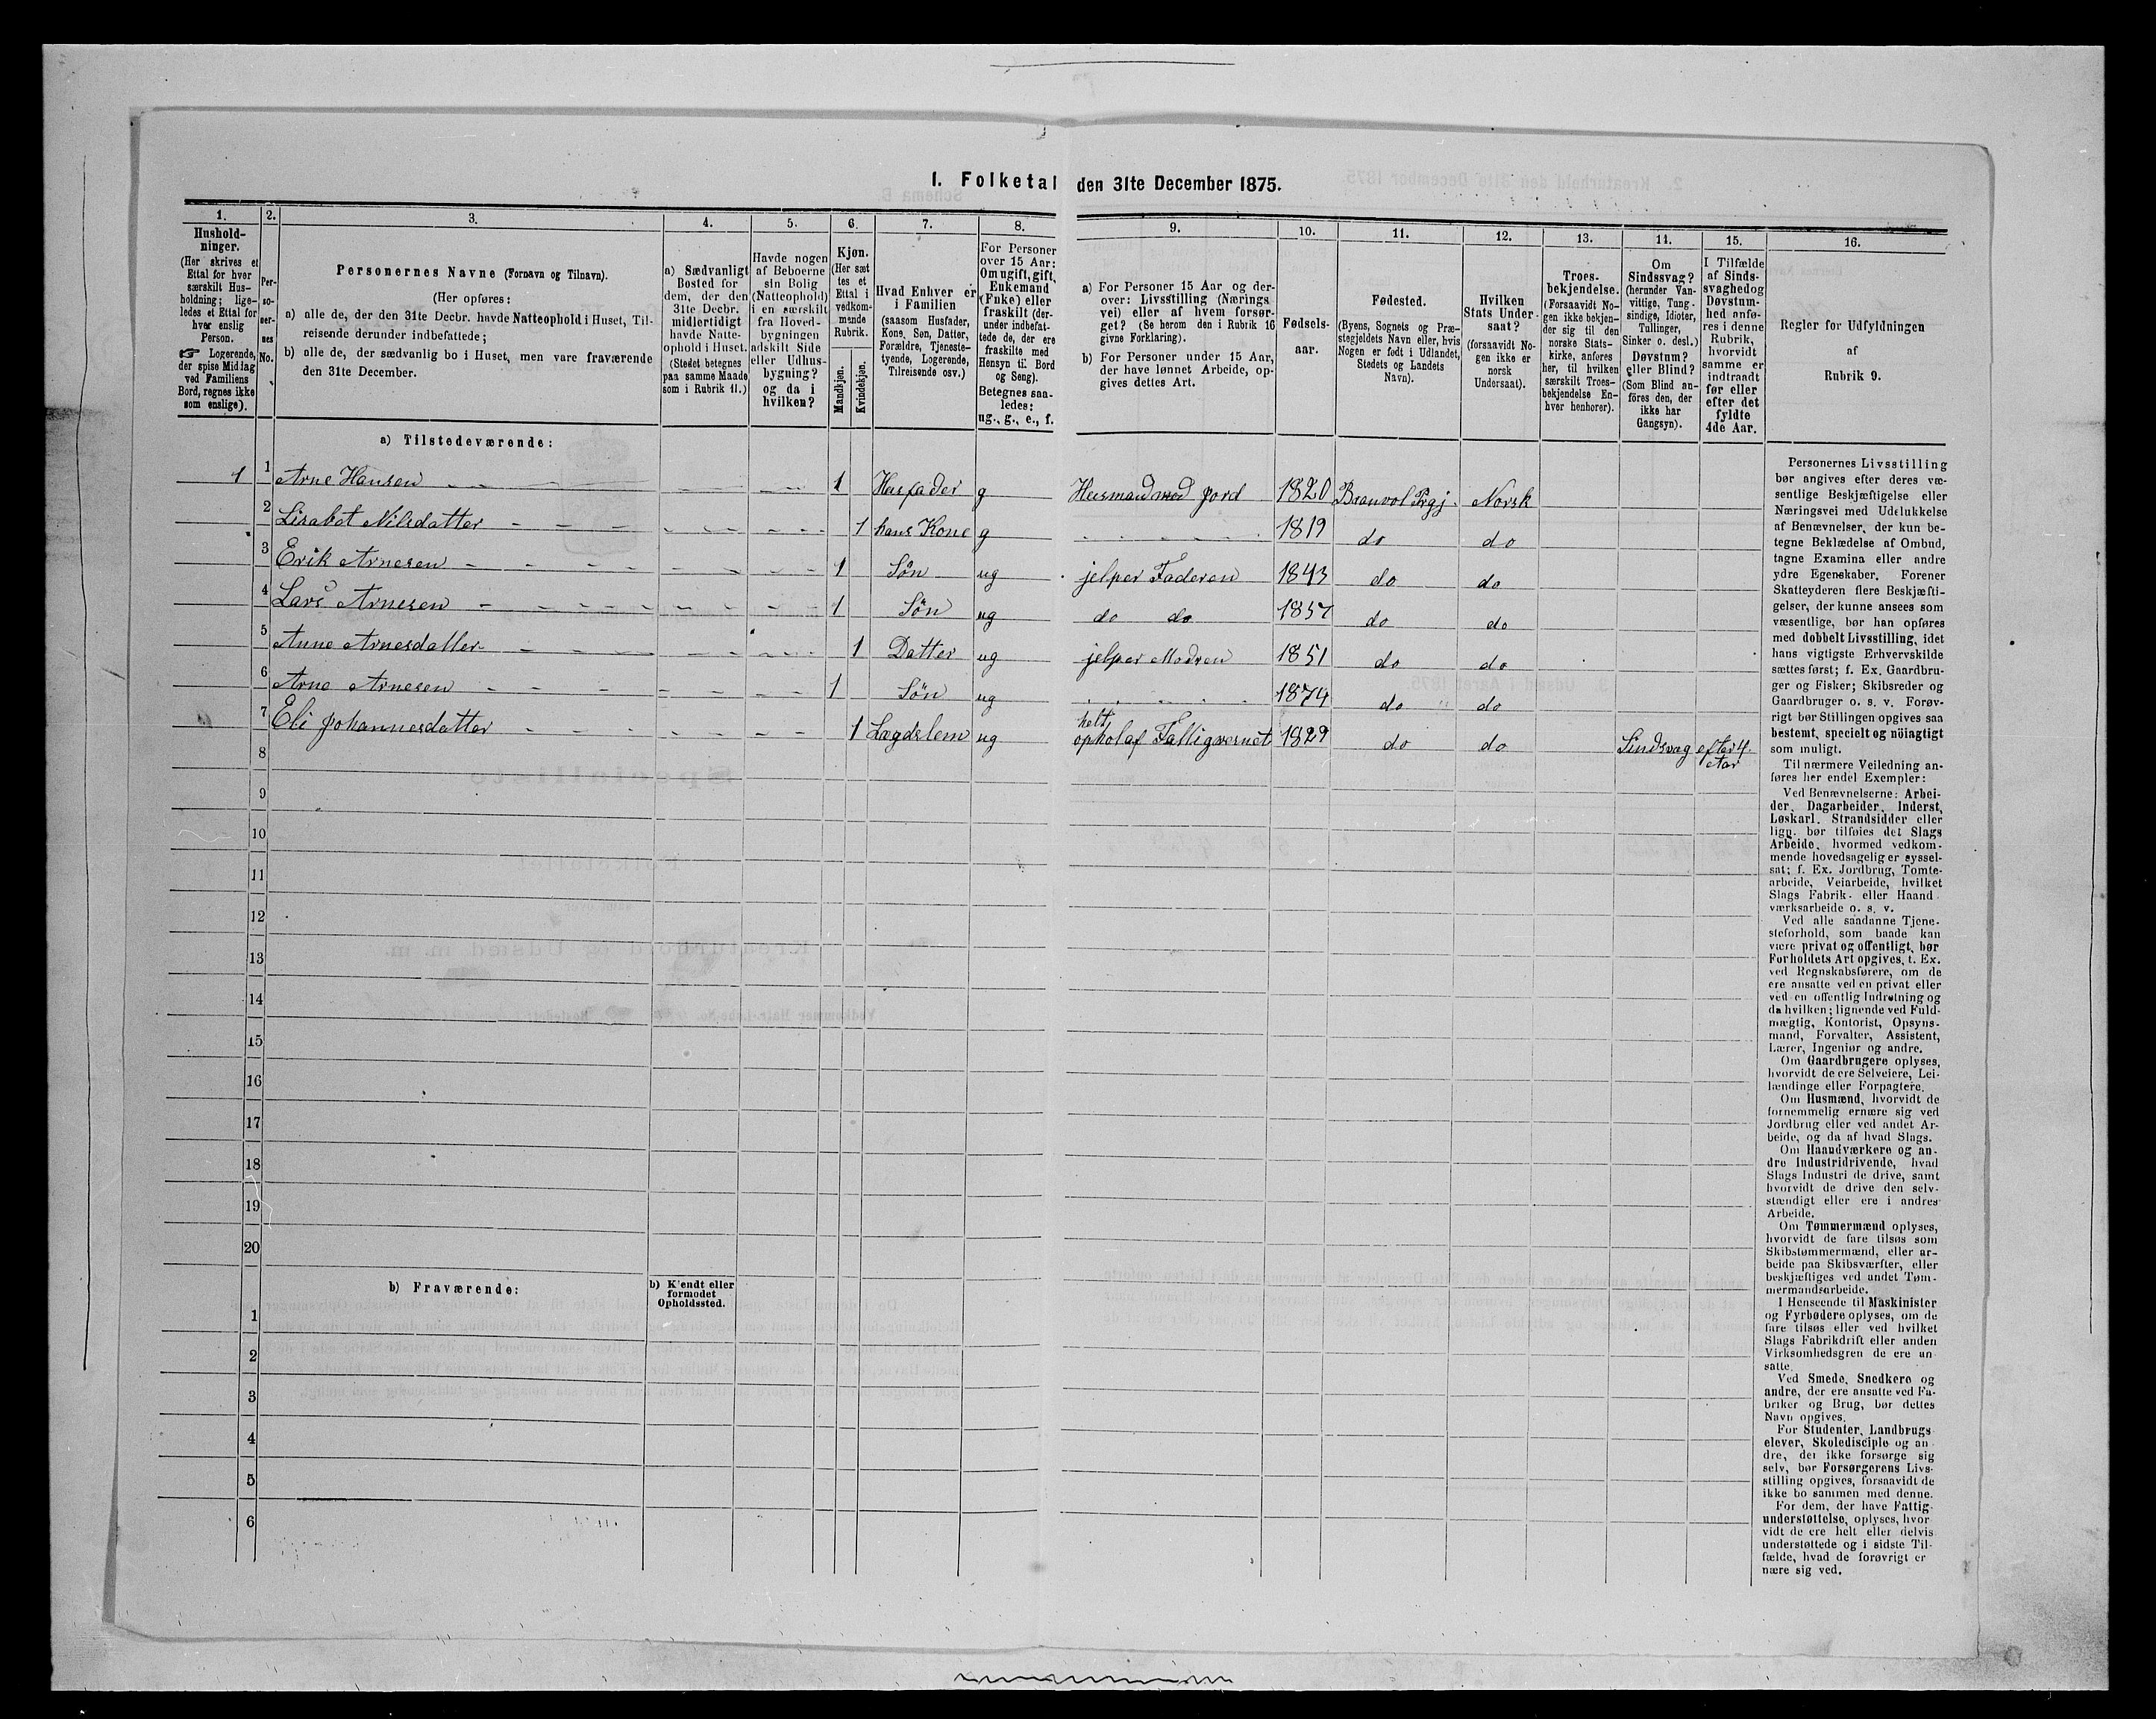 1. Folketal den 31te December 1875.
1.
Hushold-
ninger.
(Her skrives et
Ettal for hver
særskilt Hus-
holdning; lige-
ledes et Ettal for
hver enslig
Person.
☞ Logerende,
der spise Middag
ved Familiens
Bord, regnes ikke
som enslige).
2.
Per-
so-
ner-
nes
No.
3.
Personernes Navne (Fornavn og Tilnavn).
(Her opføres:
a) alle de, der den 31te Decbr. havde Natteophold i Huset, Til-
reisende derunder indbefattede;
b) alle de, der sædvanlig bo i Huset, men vare fraværende
den 31te December.
4.
a) Sædvanligt
Bosted for
dem, der den
31te Decbr.
midlertidigt
havde Natte-
ophold i Huset.
(Stedet betegnes
paa samme Maade
som i Rubrik 11.)
5.
Havde nogen
af Beboerne
sin Bolig
(Natteophold)
i en særskilt
fra Hoved-
bygningen
adskilt Side
eller Udhus-
bygning?
og da i
hvilken?
6.
Kjøn.
(Her sæt
tes et
Ettal i
vedkom-
mende
Rubrik.
Mandkjøn.
Kvindekjøn.
7.
Hvad Enhver er
i Familien
(saasom Husfader,
Kone, Søn, Datter,
Forældre, Tjeneste-
tyende, Logerende,
Tilreisende osv.)
8.
For Personer
over 15 Aar:
Om ugift, gift,
Enkemand
(Enke) eller
fraskilt (der-
under indbefat-
tede de, der ere
fraskilte med
Hensyn til Bord
og Seng).
Betegnes saa-
ledes:
ug., g., e., f.
9.
a) For Personer 15 Aar og der-
over: Livsstilling (Nærings
vei) eller af hvem forsør-
get? (Se herom den i Rubrik 16
givne Forklaring).
b) For Personer under 15 Aar,
der have lønnet Arbeide, op-
gives dettes Art.
10.
Fødsels-
aar.
11.
Fødested.
(Byens, Sognets og Præ-
stegjeldets Navn eller, hvis
Nogen er født i Udlandet,
Stedets og Landets
Navn).
12.
Hvilken
Stats Under-
saat?
(forsaavidt No-
gen ikke er
norsk
Undersaat).
13.
Troes-
bekjendelse.
(Forsaavidt No-
gen ikke bekjen-
der sig til den
norske Stats-
kirke, anføres
her, til hvilken
særskilt Troes-
bekjendelse En-
hver henhører).
14.
Om
Sindssvag?
(herunder Van-
vittige, Tung-
sindige, Idioter,
Tullinger,
Sinker o. desl.)
Døvstum?
eller Blind?
(Som Blind an-
føres den, der
ikke har
Gangsyn).
15.
I Tilfælde
af Sinds-
svaghed og
Døvstum-
hed anfø-
res i denne
Rubrik,
hvorvidt
samme er
indtraadt
før eller
efter det
fyldte
4de Aar.
16.
Regler for Udfyldningen
af
Rubrik 9.
a) Tilstedeværende:
1 1 Arne Hansen 1 Husfader g Husmand med Jord 1820 Branvol Prgj. Norsk
2 Lisabet Nilsdatter 1 hans Kone g 1819 do do
3 Erik Arnesen 1 Søn ug jelper Faderen 1843 do do
4 Lars Arnesen 1 Søn ug do do 1857 do do
5 Anne Arnesdatter 1 Datter ug jelper Modren 1851 do do
6 Arne Arnesen 1 Søn ug 1874 do do
7 Eli Johannesdatter 1 Lægdslem ug helt ophol af Fattigvesnet 1829 do do Sindsvag efter 4. Aar
8
9
10
11
12
13
14
15
16
17
18
19
20
b) Fraværende:
b) Kjendt eller
formodet
Opholdssted.
1
2
3
4
5
6
Personernes Livsstilling
bør angives efter deres væ-
sentlige Beskjæftigelse eller
Næringsvei med Udelukkelse
af Benævnelser, der kun be-
tegne Beklædelse af Ombud,
tagne Examina eller andre
ydre Egenskaber. Forener
Skatteyderen flere Beskjæfti-
gelser, der kunne ansees som
væsentlige, bør han opføres
med dobbelt Livsstilling, idet
hans vigtigste Erhvervskilde
sættes først; f. Ex. Gaardbru-
ger og Fisker; Skibsreder og
Gaardbruger o. s. v. Forøv-
rigt bør Stillingen opgives saa
bestemt, specielt og nöiagtigt
som muligt.
Til nærmere Veiledning an-
føres her endel Exempler:
Ved Benævnelserne: Arbei-
der, Dagarbeider, Inderst,
Løskarl, Strandsidder eller
lign. bør tilføies det Slags
Arbeide, hvormed vedkom-
mende hovedsagelig er syssel-
sat; f. Ex. Jordbrug, Tomte-
arbeide, Veiarbeide, hvilket
Slags Fabrik- eller Haand-
værksarbeide o. s. v.
Ved alle saadanne Tjene-
steforhold, som baade kan
være privat og offentligt, bør
Forholdets Art opgives, f. Ex.
ved Regnskabsførere, om de
ere ansatte ved en privat eller
ved en offentlig Indretning og
da hvilken; lignende ved Fuld-
mægtig, Kontorist, Opsyns-
mand, Forvalter, Assistent,
Lærer, Ingeniør og andre.
Om Gaardbrugere oplyses,
hvorvidt de ere Selveiere, Lei-
lændinge eller Forpagtere.
Om Husmænd, hvorvidt de
fornemmelig ernære sig ved
Jordbrug eller ved andet Ar-
beide, og da af hvad Slags.
Om Haandværkere og an-
dre Industridrivende, hvad
Slags Industri de drive, samt
hvorvidt de drive den selv-
stændigt eller ere i andres
Arbeide.
Om Tømmermænd oplyses,
hvorvidt de fare tilsøs som
Skibstømmermænd, eller ar-
beide paa Skibsværfter, eller
beskjæftiges ved andet Tøm-
mermandsarbeide.
I Henseende til Maskinister
og Fyrbødere oplyses, om de
fare tilsøs eller ved hvilket
Slags Fabrikdrift eller anden
Virksomhedsgren de ere an-
satte.
Ved Smede, Snedkere og
andre, der ere ansatte ved Fa-
briker og Brug, bør dettes
Navn opgives.
For Studenter, Landbrugs-
elever, Skoledisciple og an-
dre, der ikke forsørge sig
selv, bør Forsørgerens Livs-
stilling opgives, forsaavidt de
ikke bo sammen med denne.
For dem, der have Fattig-
understøttelse, oplyses, hvor-
vidt de ere helt eller delvis
understøttede og i sidste Til-
fælde, hvad de forøvrigt er
nære sig ved.